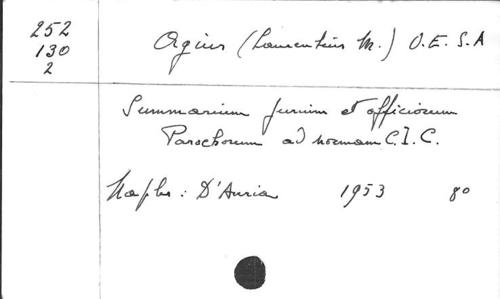 252
130
2
Agius (Laurentius M.) O.E.S.A
Summarium jurium et officiorum
Parochorum ad normam C.I.C.
Naples: D'Auria 1953 8o